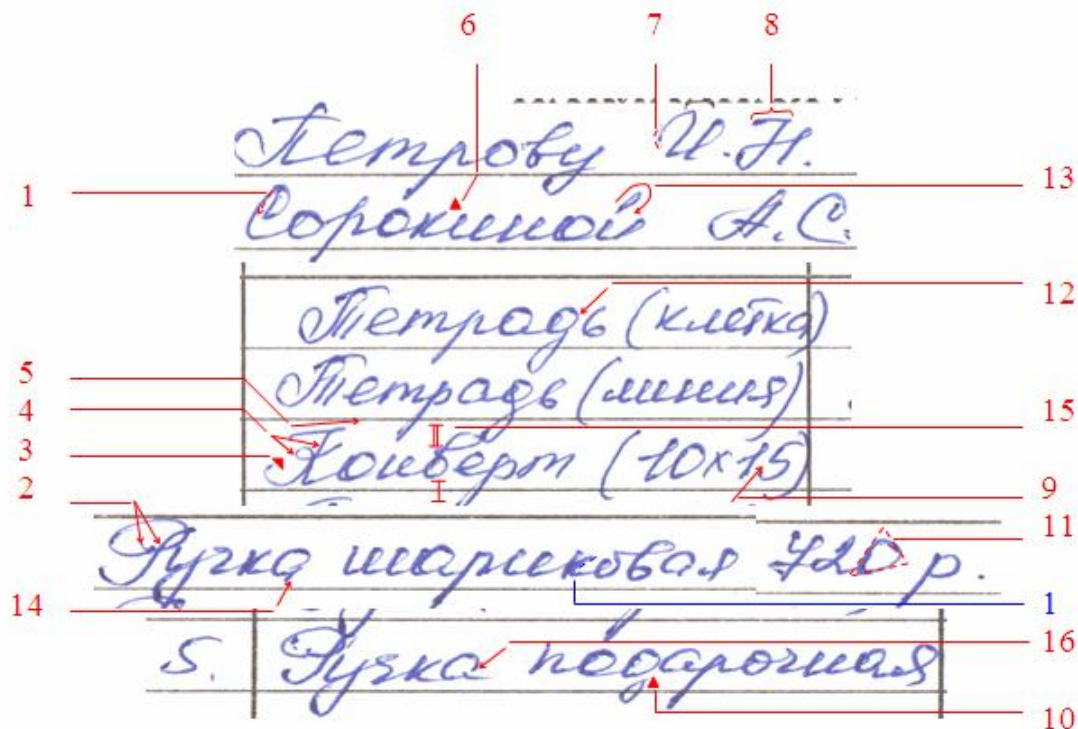 6 7 8
Петрову И.Н.
1 Сорокиной А.С. 13
Тетрадь (клетка) 12
5 Тетрадь (линия) 15
4
3 Конверт (10х15)
2 9
Ручка шариковая 720 р. 11
14 1
5. Ручка подарочная 16
10